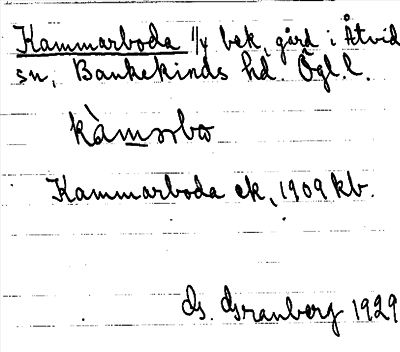 Kammarboda 1/4 bek, gård i Åtvid
sn, Bankekinds hd. Ögl.l.
kàmərbo
Kammarboda ek, 1909 kb.
G. Granberg 1929